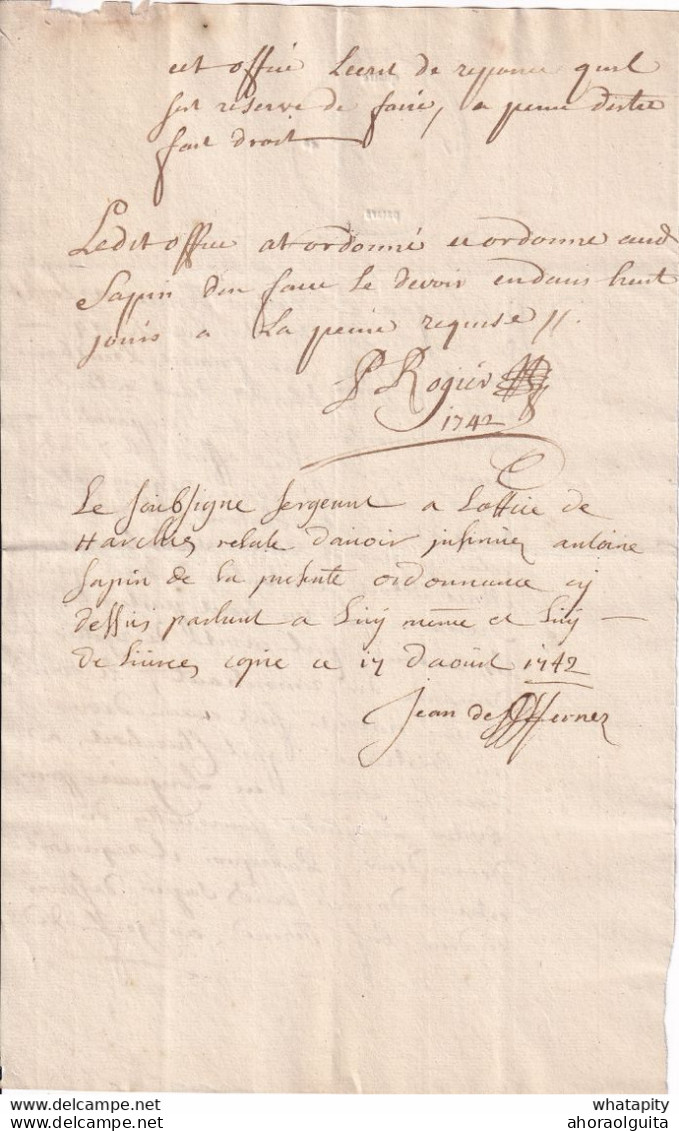 cet office Lecrit de reponce quil
sest reservé de faire, a peine destre
fait droit
Ledit office at ordonné et ordonne aud
Sapin den faire le devoir endans huit
jours a La peine requise //.
P Rogier
1742
Le soubsigne sergeant a Loffice de
Harchies relate davoir insinuez antoine
sapin de la presente ordonnance cy
dessus parlant a luy meme et luy
delivrez copie ce 17 daoust 1742
Jean de
whatapity
ahoraolguita